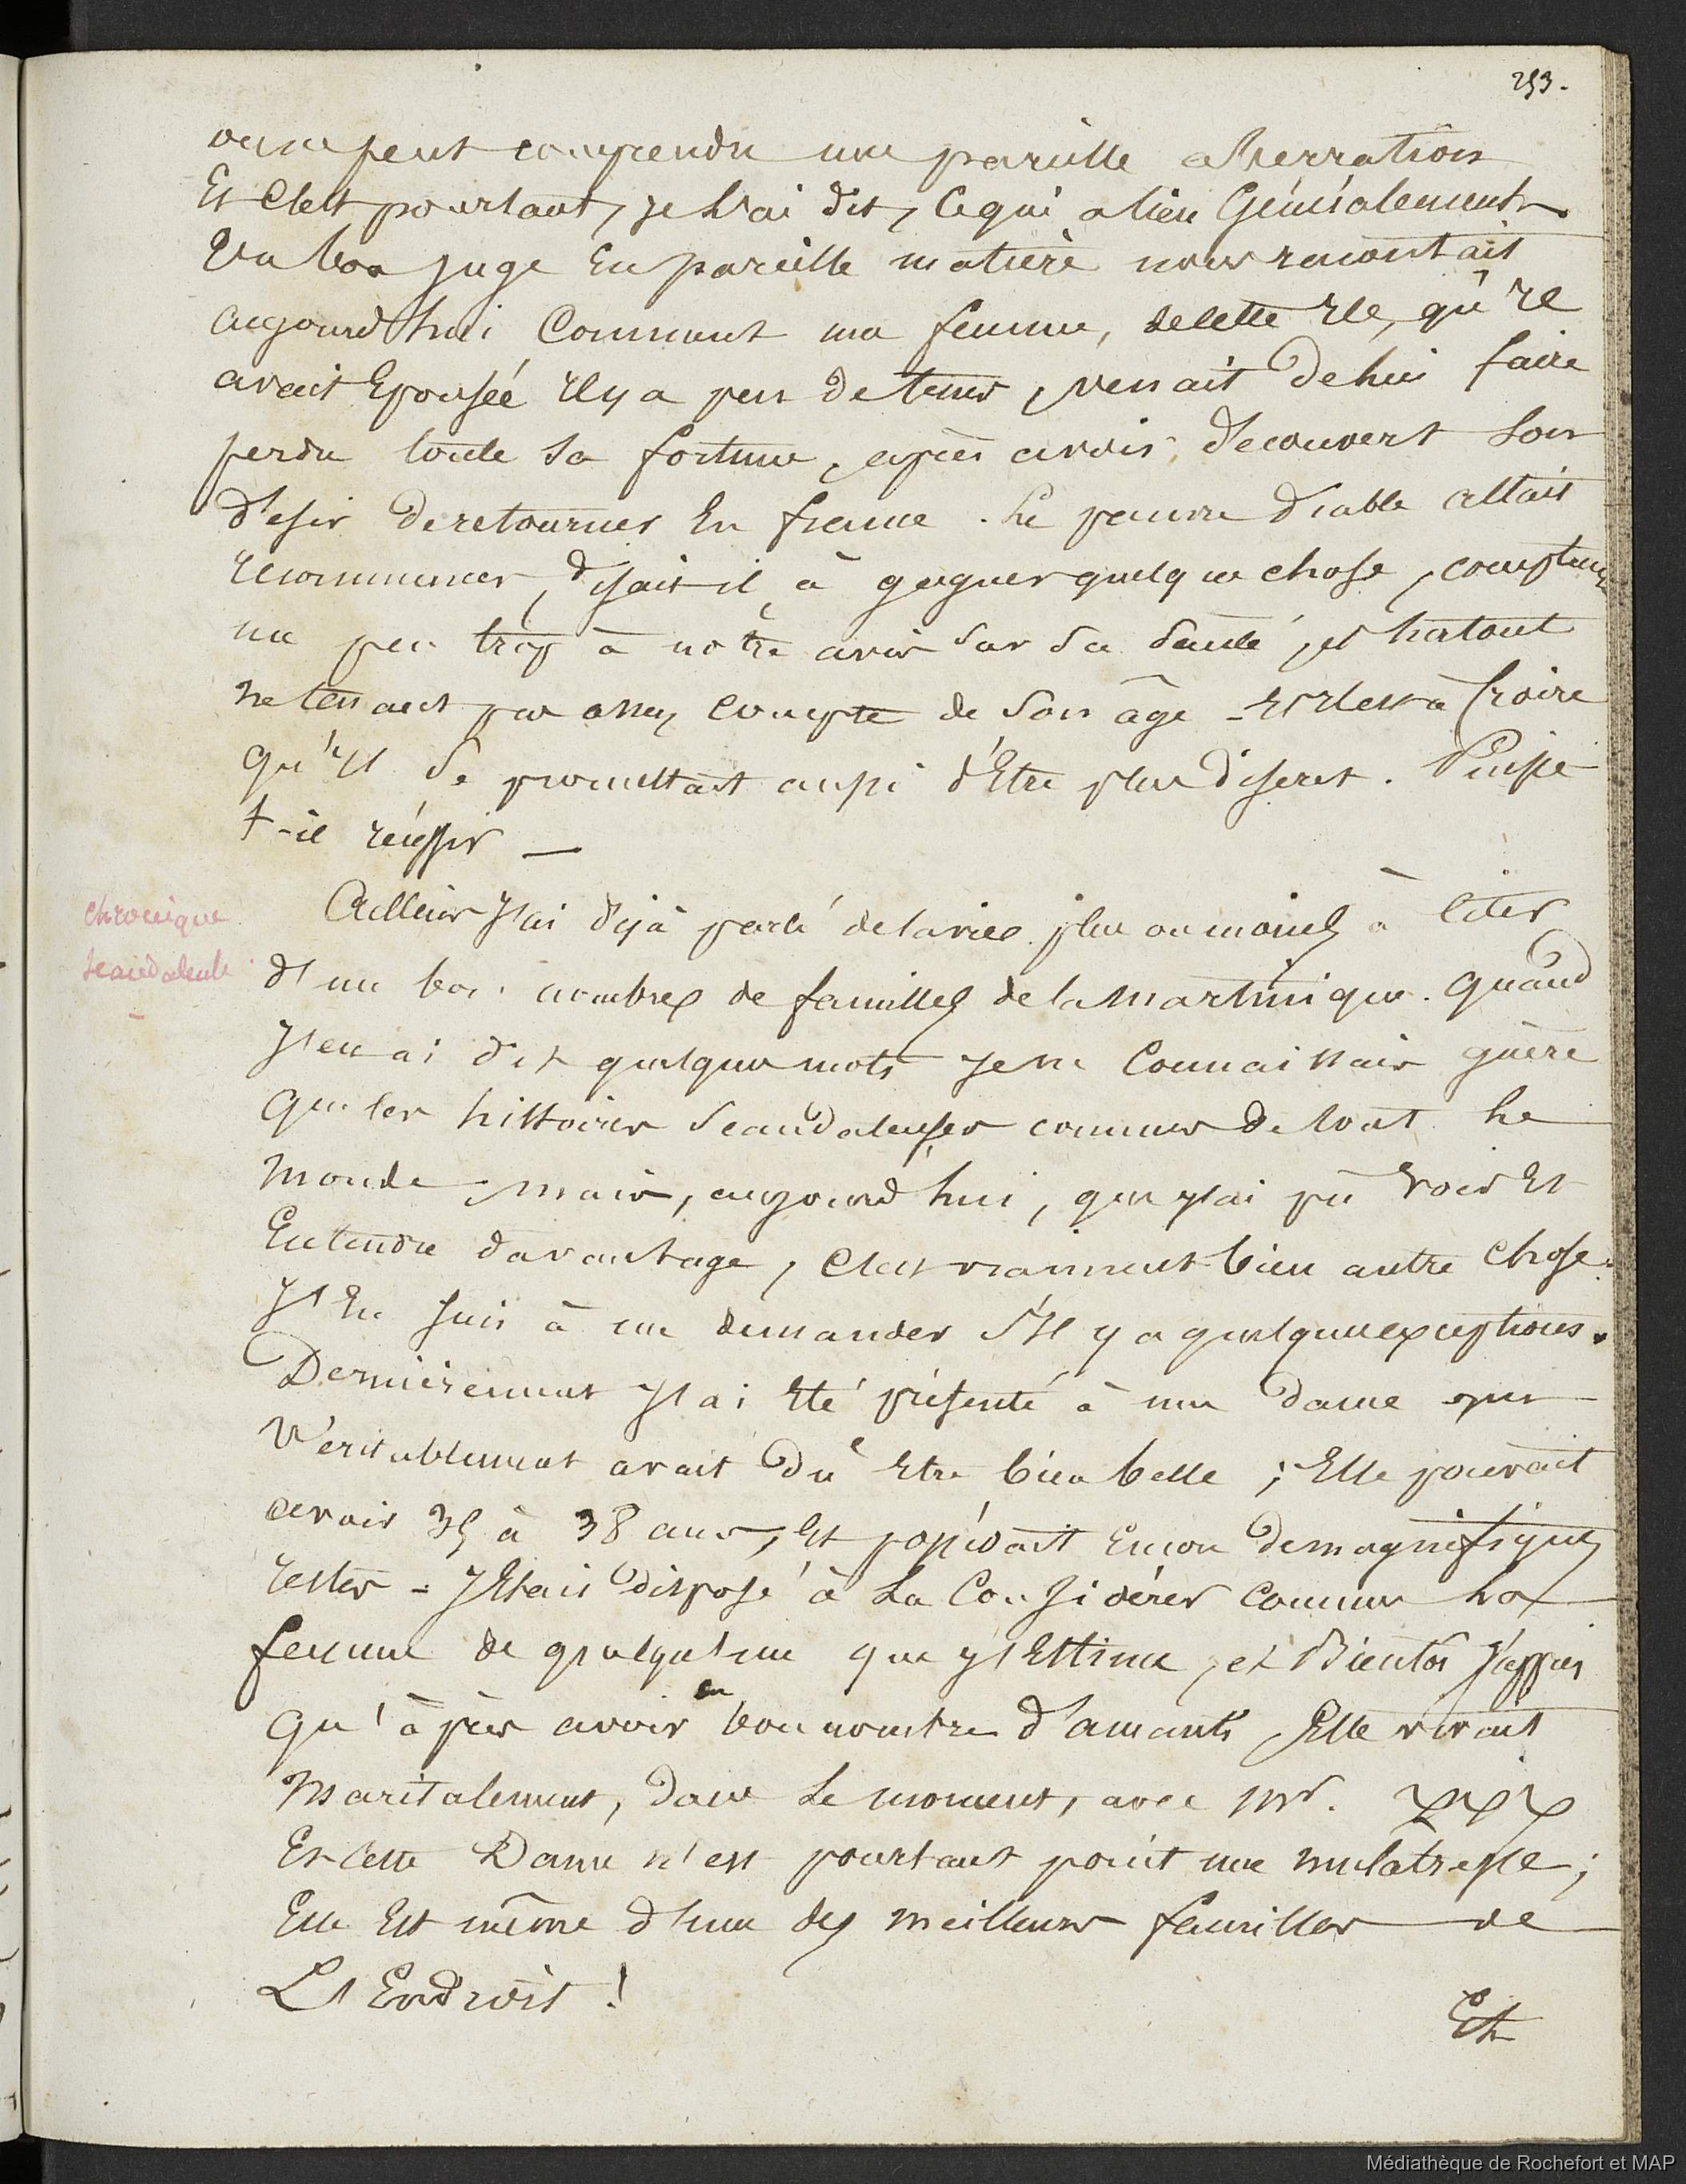 253.
on ne peut comprendre une pareille aberration
Et C'est pourtant, je l'ai dit, Ce qui a lieu Généralement.
Un bon juge En pareille matière nous racontait
aujourd'hui Comment une femme, de cette Ile, qu'il
avait Epousée Il y a peu de tems, venait de lui faire
perdre toute sa fortune, après avoir découvert son
désir de retourner En france. Le pauvre diable allait
recommencer, disait-il, à gagner quelque chose, comptant
un peu trop à notre avis sur sa santé, et surtout
ne tenant pas assez compte de son âge - Et Il est à Croire
qu'Il se promettait aussi d'Etre plus discret. Puisse
t-il réussir —
chronique
scandaleuse
Ailleurs J'ai déjà parlé de la vie plus ou moins à citer
d'un bon nombre de familles de la Martinique. Quand
J'en ai dit quelques mots Je ne Connaissais guère
que les histoires scandaleuses connues de tout le
Monde mais, aujourd'hui, que j'ai pu Voir Et
Entendre davantage, C'est vraiment bien autre Chose.
J'En suis à me demander S'Il y a quelques exceptions.
Dernièrement J'ai Eté présenté à une dame qui
Véritablement avait dû Etre bien belle ; Elle pouvait
avoir 35 à 38 ans, Et possédait Encore de magnifiques
restes - J'Etais disposé à La Considérer Comme La
femme de quelqu'un que j'Estime, et Bientôt J'appris
qu'après avoir eu bon nombre d'amants Elle vivait
Maritalement, dans Le moment, avec Mr. XXX
Et Cette Dame n'est pourtant point une mulatresse ;
Elle Est même d'une des meilleures familles de
L'Endroit !
Et
Médiathèque de Rochefort et MAP